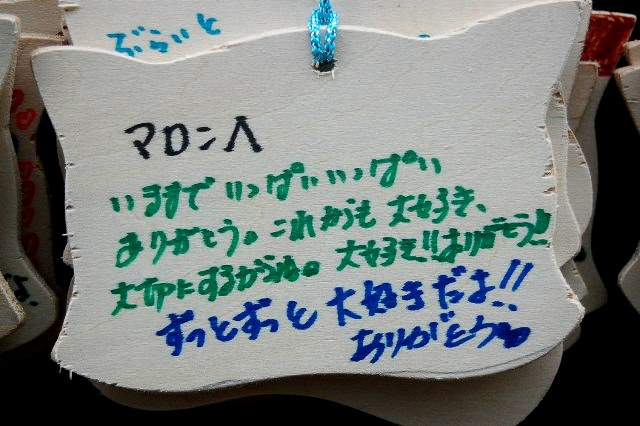 ぶらいと
マロンへ
いままで いっぱいいっぱい
ありがとう。これからも 大好き、
大切にするからね。大好き!!ありがとう!!
ずっとずっと 大好きだよ!!
ありがとう